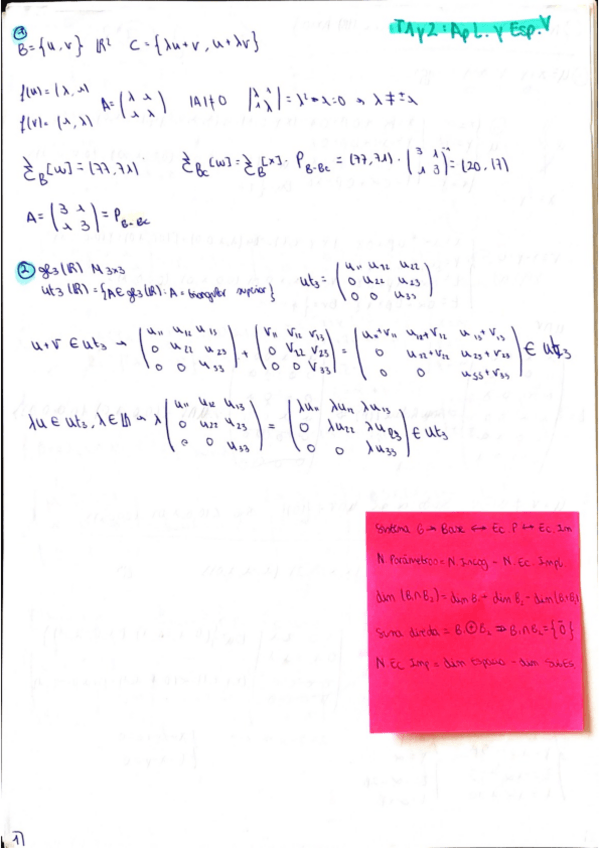 T1y2: Ap L. y Esp. V
①
B={u,v} ℝ² C={λu+v, u+λv}
f(u)=(λ,1) A=(λ 1; 1 λ) |A|≠0 |λ 1; 1 λ|=λ²-1=0 → λ≠±1
f(v)=(1,λ)
B[w]=(77,71) Bc[w]= B[x]· P B-Bc = (77,71)·(3 1; 1 3)=(20,17)
A=(3 1; 1 3)=P B-Bc
② gl3(ℝ) M3x3
ut3(ℝ)={A∈gl3(ℝ): A=triangular superior} ut3=(u11 u12 u22; 0 u22 u23; 0 0 u33)
u+v ∈ ut3 → (u11 u12 u13; 0 u22 u23; 0 0 u33)+(v11 v12 v13; 0 v22 v23; 0 0 v33)=(u11+v11 u12+v12 u13+v13; 0 u22+v22 u23+v23; 0 0 u33+v33) ∈ ut3
λu ∈ ut3, λ∈ℝ → λ(u11 u12 u13; 0 u22 u23; 0 0 u33)=(λu11 λu12 λu13; 0 λu22 λu23; 0 0 λu33) ∈ ut3
Sistema G → Base ↔ Ec. P ↔ Ec. Im
N Parámetros = N. Incog - N. Ec. Impl.
dim (B1∩B2)=dim B1+dim B2-dim(B1+B2
Suma directa = B1⊕B2 ⇒ B1∩B2={0}
N. Ec Imp = dim Espacio - dim SubEs.
1